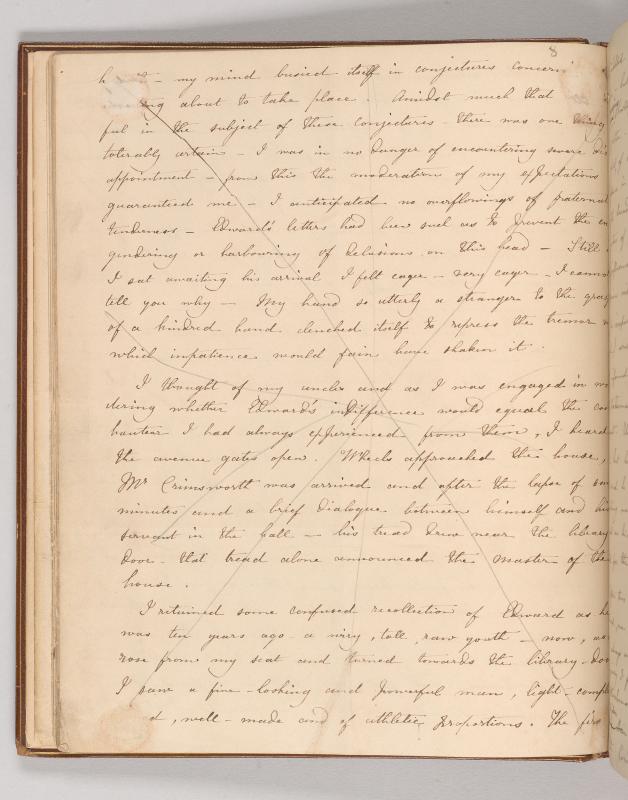 8
my mind busied itself in conjectures concerni
ing about to take place. Amidst much that
ful in the subject of these conjectures - there was one thing
tolerably certain - I was in no danger of encountering severe dis
appointment - from this the moderation of my expectations
guaranteed me - I anticipated no overflowings of fraternal
tenderness - Edward's letters had been such as to prevent the en
gendering or harbouring of delusions on this head - Still
I sat awaiting his arrival I felt eager - very eager - I canno
tell you why - My hand so utterly a stranger to the grasp
of a kindred hand clenched itself to repress the tremor
which impatience would fain have shaken it.
I thought of my uncles and as I was engaged in wo
dering whether Edward's indifference would equal the co
hauteur I had always experienced from them, I heard
the avenue gates open. Wheels approached the house,
Mr Crimsworth was arrived and after the lapse of some
minutes and a brief dialogue between himself and his
servant in the hall - his tread drew near the library
door - that tread alone announced the master of the
house.
I retained some confused recollection of Edward as he
was ten years ago - a wiry, tall, raw youth - now, as
rose from my seat and turned towards the library-doo
I saw a fine-looking and powerful man, light-comple
d, well-made and of athletic proportions. The firs